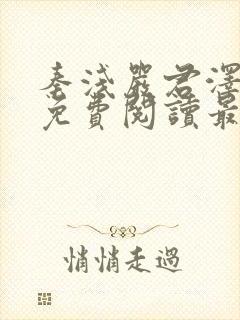 秦淺嚴君澤
免費閱讀最
悄悄走過